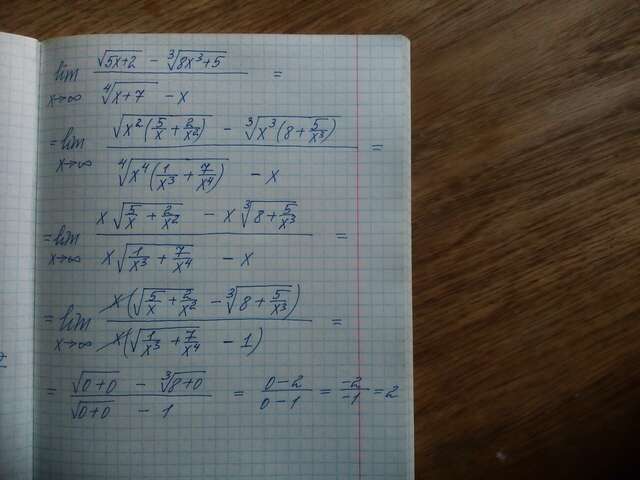 lim x→∞ (√(5x+2) - ∛(8x³+5)) / (∜(x+7) - x) =
= lim x→∞ (√(x²(5/x + 2/x²)) - ∛(x³(8 + 5/x³))) / (∜(x⁴(1/x³ + 7/x⁴)) - x) =
= lim x→∞ (x√(5/x + 2/x²) - x∛(8 + 5/x³)) / (x√(1/x³ + 7/x⁴) - x) =
= lim x→∞ x(√(5/x + 2/x²) - ∛(8 + 5/x³)) / x(√(1/x³ + 7/x⁴) - 1) =
= (√(0+0) - ∛(8+0)) / (√(0+0) - 1) = (0-2)/(0-1) = -2/-1 = 2